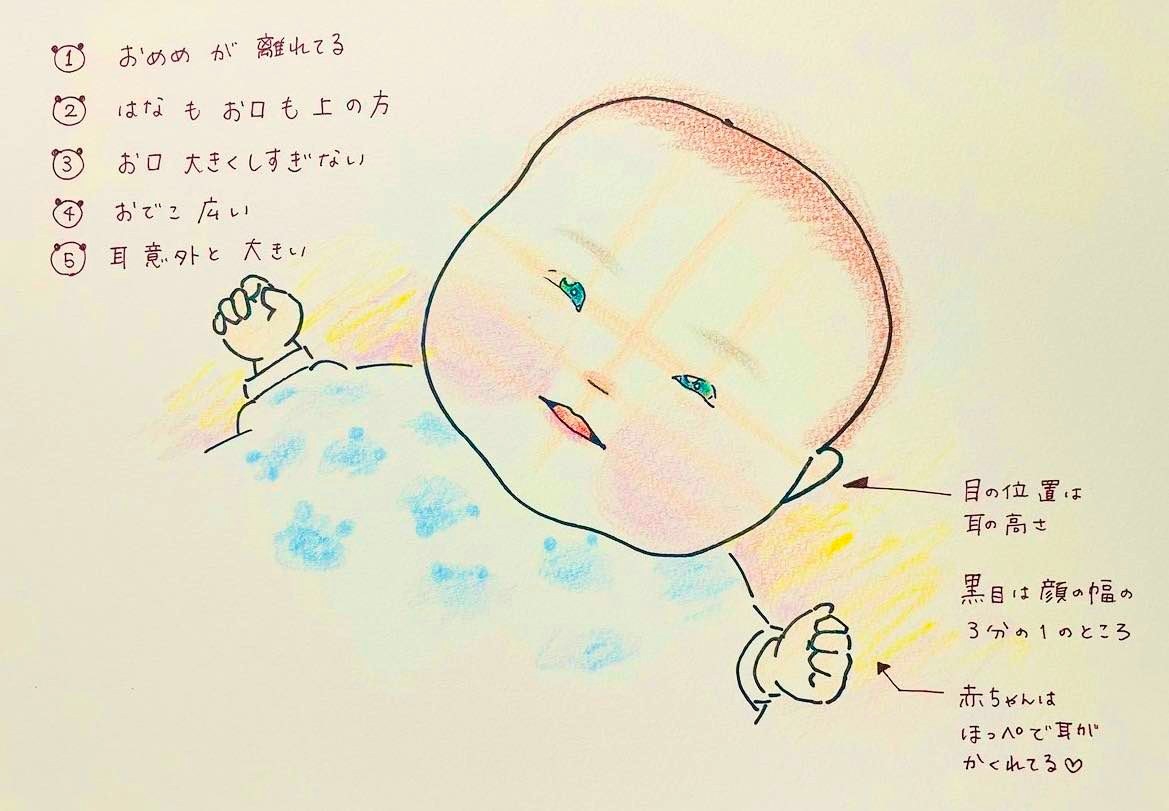 ① おめめ が 離れてる
② はな も お口 も 上 の 方
③ お口 大きくしすぎない
④ おでこ 広い
⑤ 耳 意外と 大きい
目の位置は
耳の高さ
黒目は顔の幅の
3分の1のところ
赤ちゃんは
ほっペで耳が
かくれてる♡